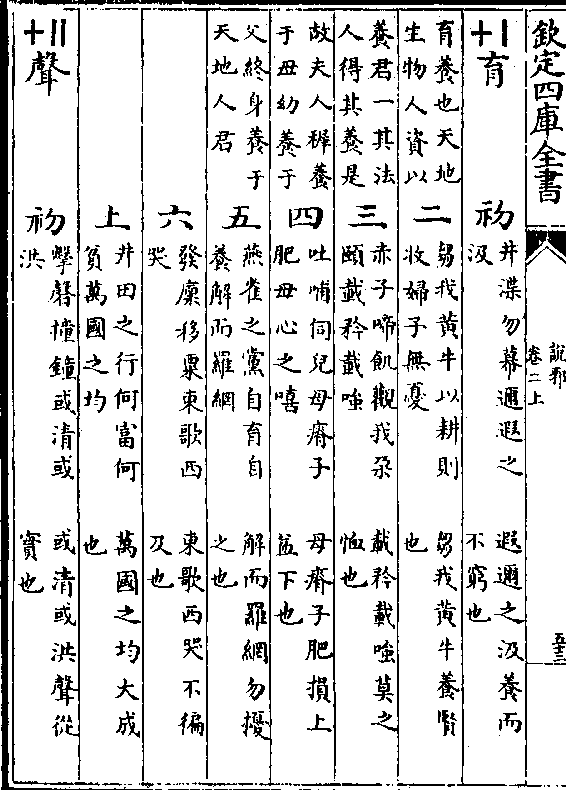 欽定四庫全書
說郛
卷二上
五十三
十〡育
初
井渫勿幕邇遐之
汲
遐邇之汲養而
不窮也
育養也天地
生物人資以
二
芻我黃牛以耕則
收婦子無憂
芻我黃牛養賢
也
養君一其法
人得其養是
三
赤子啼飢觀我朶
頤載矜載嗤
載矜載嗤莫之
恤也
故夫人穉養
于母幼養于
四
吐哺伺兒母瘠子
肥母心之嘻
母瘠子肥損上
益下也
父終身養于
天地人君
五
燕雀之黨自育自
養解而羅網
解而羅網勿擾
之也
六
發廩移粟東歌西
哭
東歌西哭不徧
及也
上
井田之行何富何
貧萬國之均
萬國之均大成
也
十〢聲
初
擊磬撞鐘或清或
洪
或清或洪聲從
實也